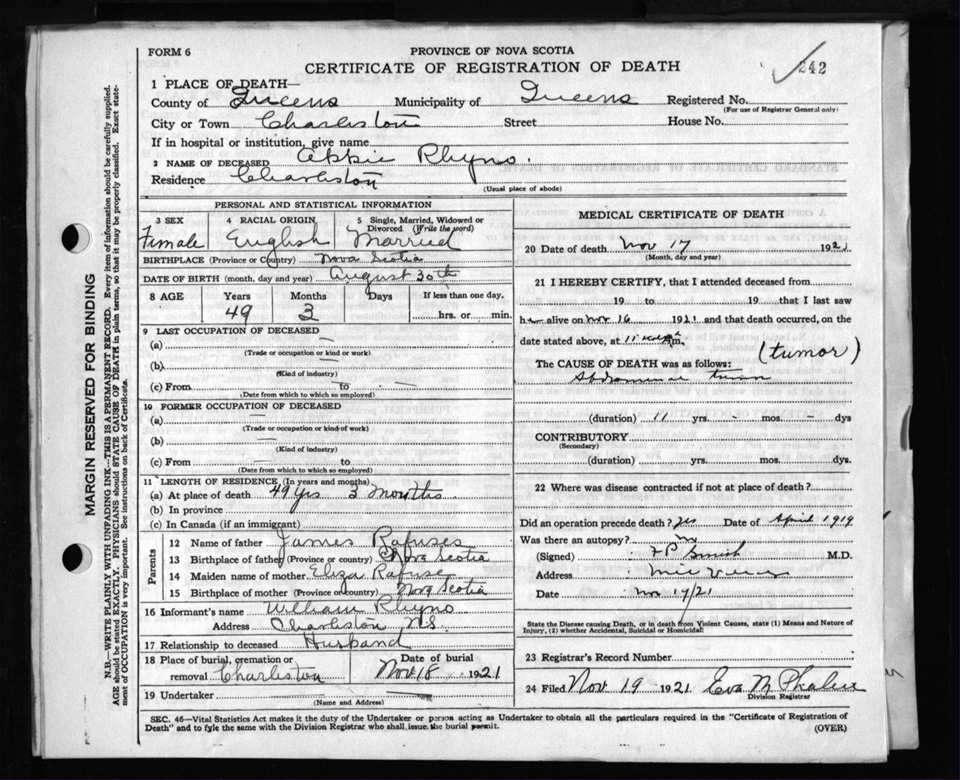 FORM 6
PROVINCE OF NOVA SCOTIA
CERTIFICATE OF REGISTRATION OF DEATH
242
1 PLACE OF DEATH—
County of Queens Municipality of Queens Registered No.
(For use of Registrar General only)
City or Town Charleston Street House No.
If in hospital or institution, give name
2 NAME OF DECEASED Abbie Rhyno.
Residence Charleston
(Usual place of abode)
PERSONAL AND STATISTICAL INFORMATION
3 SEX 4 RACIAL ORIGIN 5 Single, Married, Widowed or Divorced (Write the word)
Female English Married
BIRTHPLACE (Province or Country) Nova Scotia
DATE OF BIRTH (month, day and year) August 30th
8 AGE Years Months Days If less than one day,
49 3 hrs. or min.
9 LAST OCCUPATION OF DECEASED
(a) —
(Trade or occupation or kind or work)
(b)
(Kind of industry)
(c) From — to —
(Date from which to which so employed)
10 FORMER OCCUPATION OF DECEASED
(a) —
(Trade or occupation or kind of work)
(b) —
(Kind of industry)
(c) From — to
(Date from which to which so employed)
11 LENGTH OF RESIDENCE (In years and months)
(a) At place of death 49 yrs 3 Months
(b) In province
(c) In Canada (if an immigrant)
Parents
12 Name of father James Rafuses
13 Birthplace of father (Province or country) Nova Scotia
14 Maiden name of mother Eliza Rafuse
15 Birthplace of mother (Province or country) Nova Scotia
16 Informant's name William Rhyno
Address Charleston N.S.
17 Relationship to deceased Husband
18 Place of burial, cremation or removal Charleston Date of burial Nov 18 1921
19 Undertaker
(Name and Address)
MEDICAL CERTIFICATE OF DEATH
20 Date of death Nov 17 1921
(Month, day and year)
21 I HEREBY CERTIFY, that I attended deceased from
19 to 19 that I last saw
her alive on Nov 16 1921 and that death occurred, on the
date stated above, at 11 m.
(tumor)
The CAUSE OF DEATH was as follows:
Abdominal tumor
(duration) 11 yrs. mos. dys
CONTRIBUTORY
(Secondary)
(duration) yrs. mos. dys.
22 Where was disease contracted if not at place of death?
Did an operation precede death? yes Date of April 1919
Was there an autopsy? no
(Signed) Smith M.D.
Address
Date Nov 17/21
State the Disease causing Death, or in death from Violent Causes, state (1) Means and Nature of
Injury, (2) whether Accidental, Suicidal or Homicidal.
23 Registrar's Record Number
24 Filed Nov 19 1921 Eva M
Division Registrar
SEC. 46—Vital Statistics Act makes it the duty of the Undertaker or person acting as Undertaker to obtain all the particulars required in the "Certificate of Registration of
Death" and to fyle the same with the Division Registrar who shall issue the burial permit.
(OVER)
MARGIN RESERVED FOR BINDING
N.B.—WRITE PLAINLY WITH UNFADING INK—THIS IS A PERMANENT RECORD. Every item of information should be carefully supplied.
AGE should be stated EXACTLY. PHYSICIANS should STATE CAUSE OF DEATH in plain terms, so that it may be properly classified. Exact state-
ment of OCCUPATION is very important. See instructions on back of Certificate.